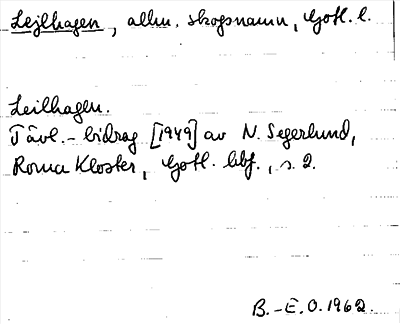 Lejlhagen, allm. skogsnamn, Gotl. l.
Leilhagen.
Tävl.-bidrag [1949] av N. Segerlund,
Roma Kloster, Gotl. hbf., s. 2.
B.-E. O. 1962.